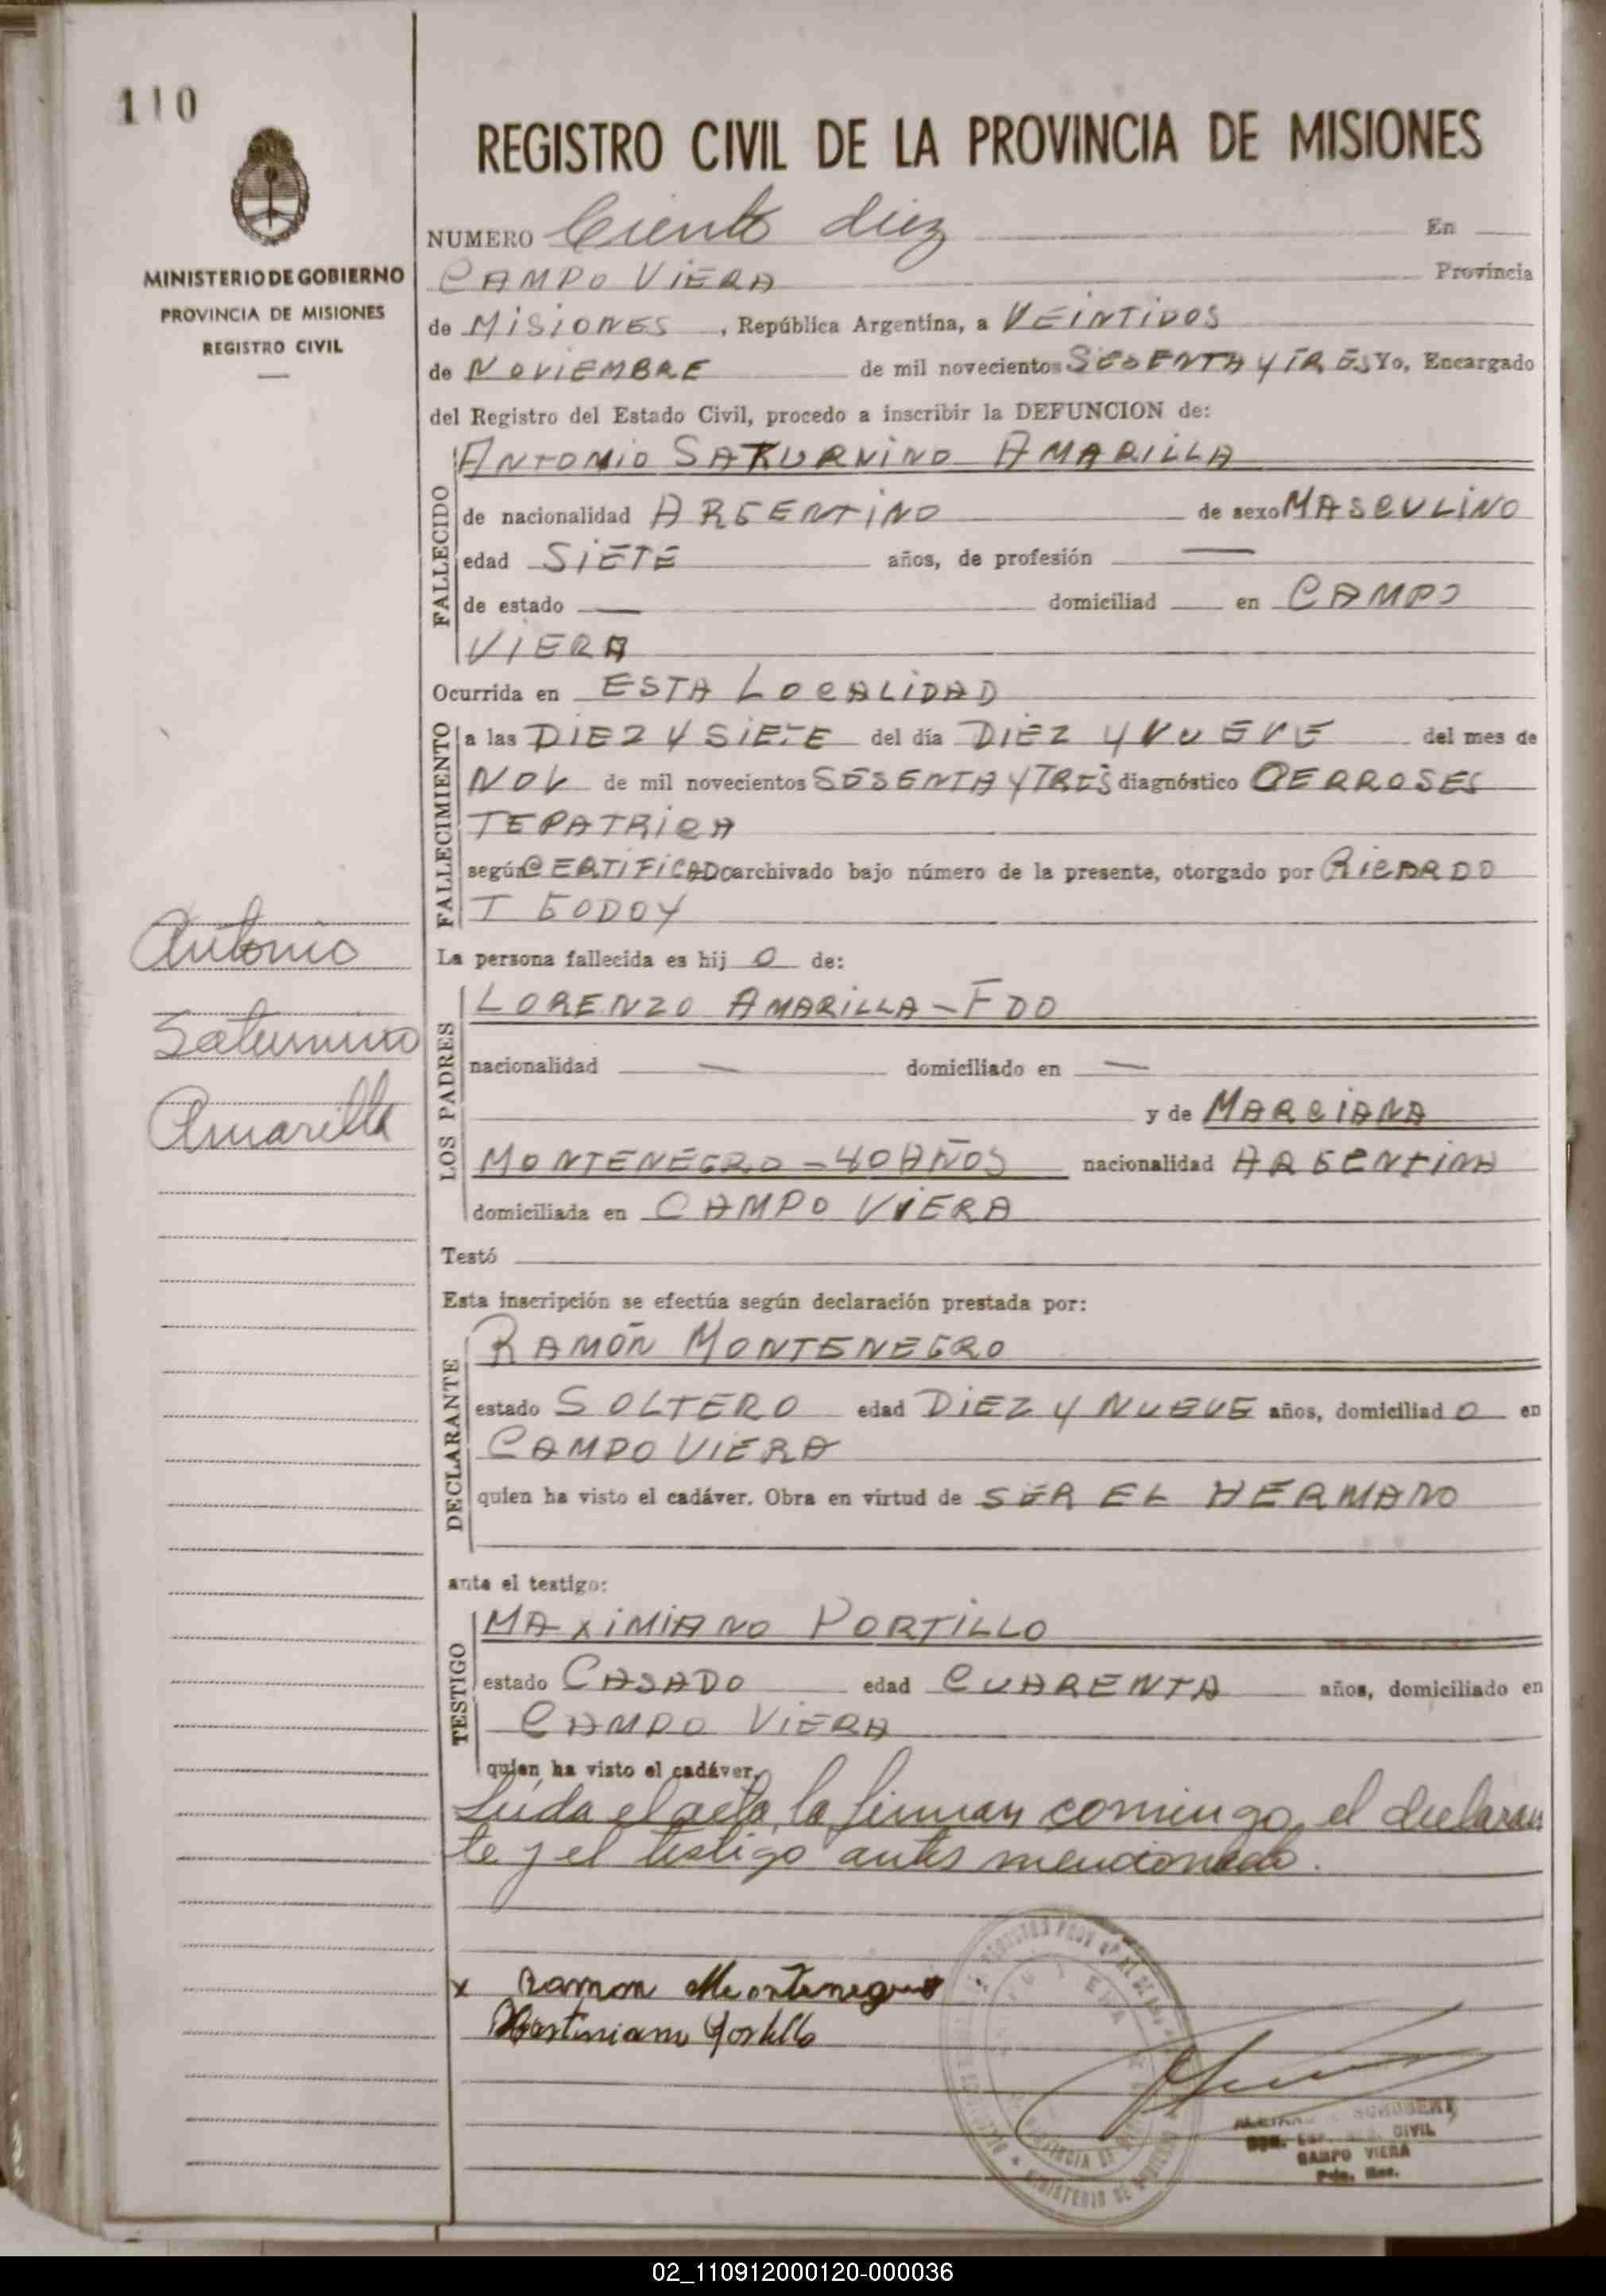 110
MINISTERIO DE GOBIERNO
PROVINCIA DE MISIONES
REGISTRO CIVIL
REGISTRO CIVIL DE LA PROVINCIA DE MISIONES
NUMERO Ciento diez En
CAMPO VIERA Provincia
de MISIONES, República Argentina, a VEINTIDOS
de NOVIEMBRE de mil novecientos SESENTA Y TRES Yo, Encargado
del Registro del Estado Civil, procedo a inscribir la DEFUNCION de:
FALLECIDO
ANTONIO SATURNINO AMARILLA
de nacionalidad ARGENTINO de sexo MASCULINO
edad SIETE años, de profesión —
de estado — domiciliad en CAMPO
VIERA
Ocurrida en ESTA LOCALIDAD
FALLECIMIENTO
a las DIEZ Y SIETE del día DIEZ Y NUEVE del mes de
NOV de mil novecientos SESENTA Y TRES diagnóstico CERROSES
TEPATRICA
según CERTIFICADO archivado bajo número de la presente, otorgado por RICARDO
T GODOY
La persona fallecida es hij O de:
Antonio
Saturnino
Amarilla
LOS PADRES
LORENZO AMARILLA - FDO
nacionalidad — domiciliado en —
y de MARCIANA
MONTENEGRO - 40 AÑOS nacionalidad ARGENTINA
domiciliada en CAMPO VIERA
Testó
Esta inscripción se efectúa según declaración prestada por:
DECLARANTE
RAMÓN MONTENEGRO
estado SOLTERO edad DIEZ Y NUEVE años, domiciliad O en
CAMPO VIERA
quien ha visto el cadáver. Obra en virtud de SER EL HERMANO
ante el testigo:
TESTIGO
MAXIMIANO PORTILLO
estado CASADO edad CUARENTA años, domiciliado en
CAMPO VIERA
quien ha visto el cadáver.
Leida el acta, la firman comingo, el declaran
te y el testigo antes mencionado.
x Ramon Montenegro
Portillo
SCHUBERT
CIVIL
CAMPO VIERA
Pcia. Mnes.
02_110912000120-000036